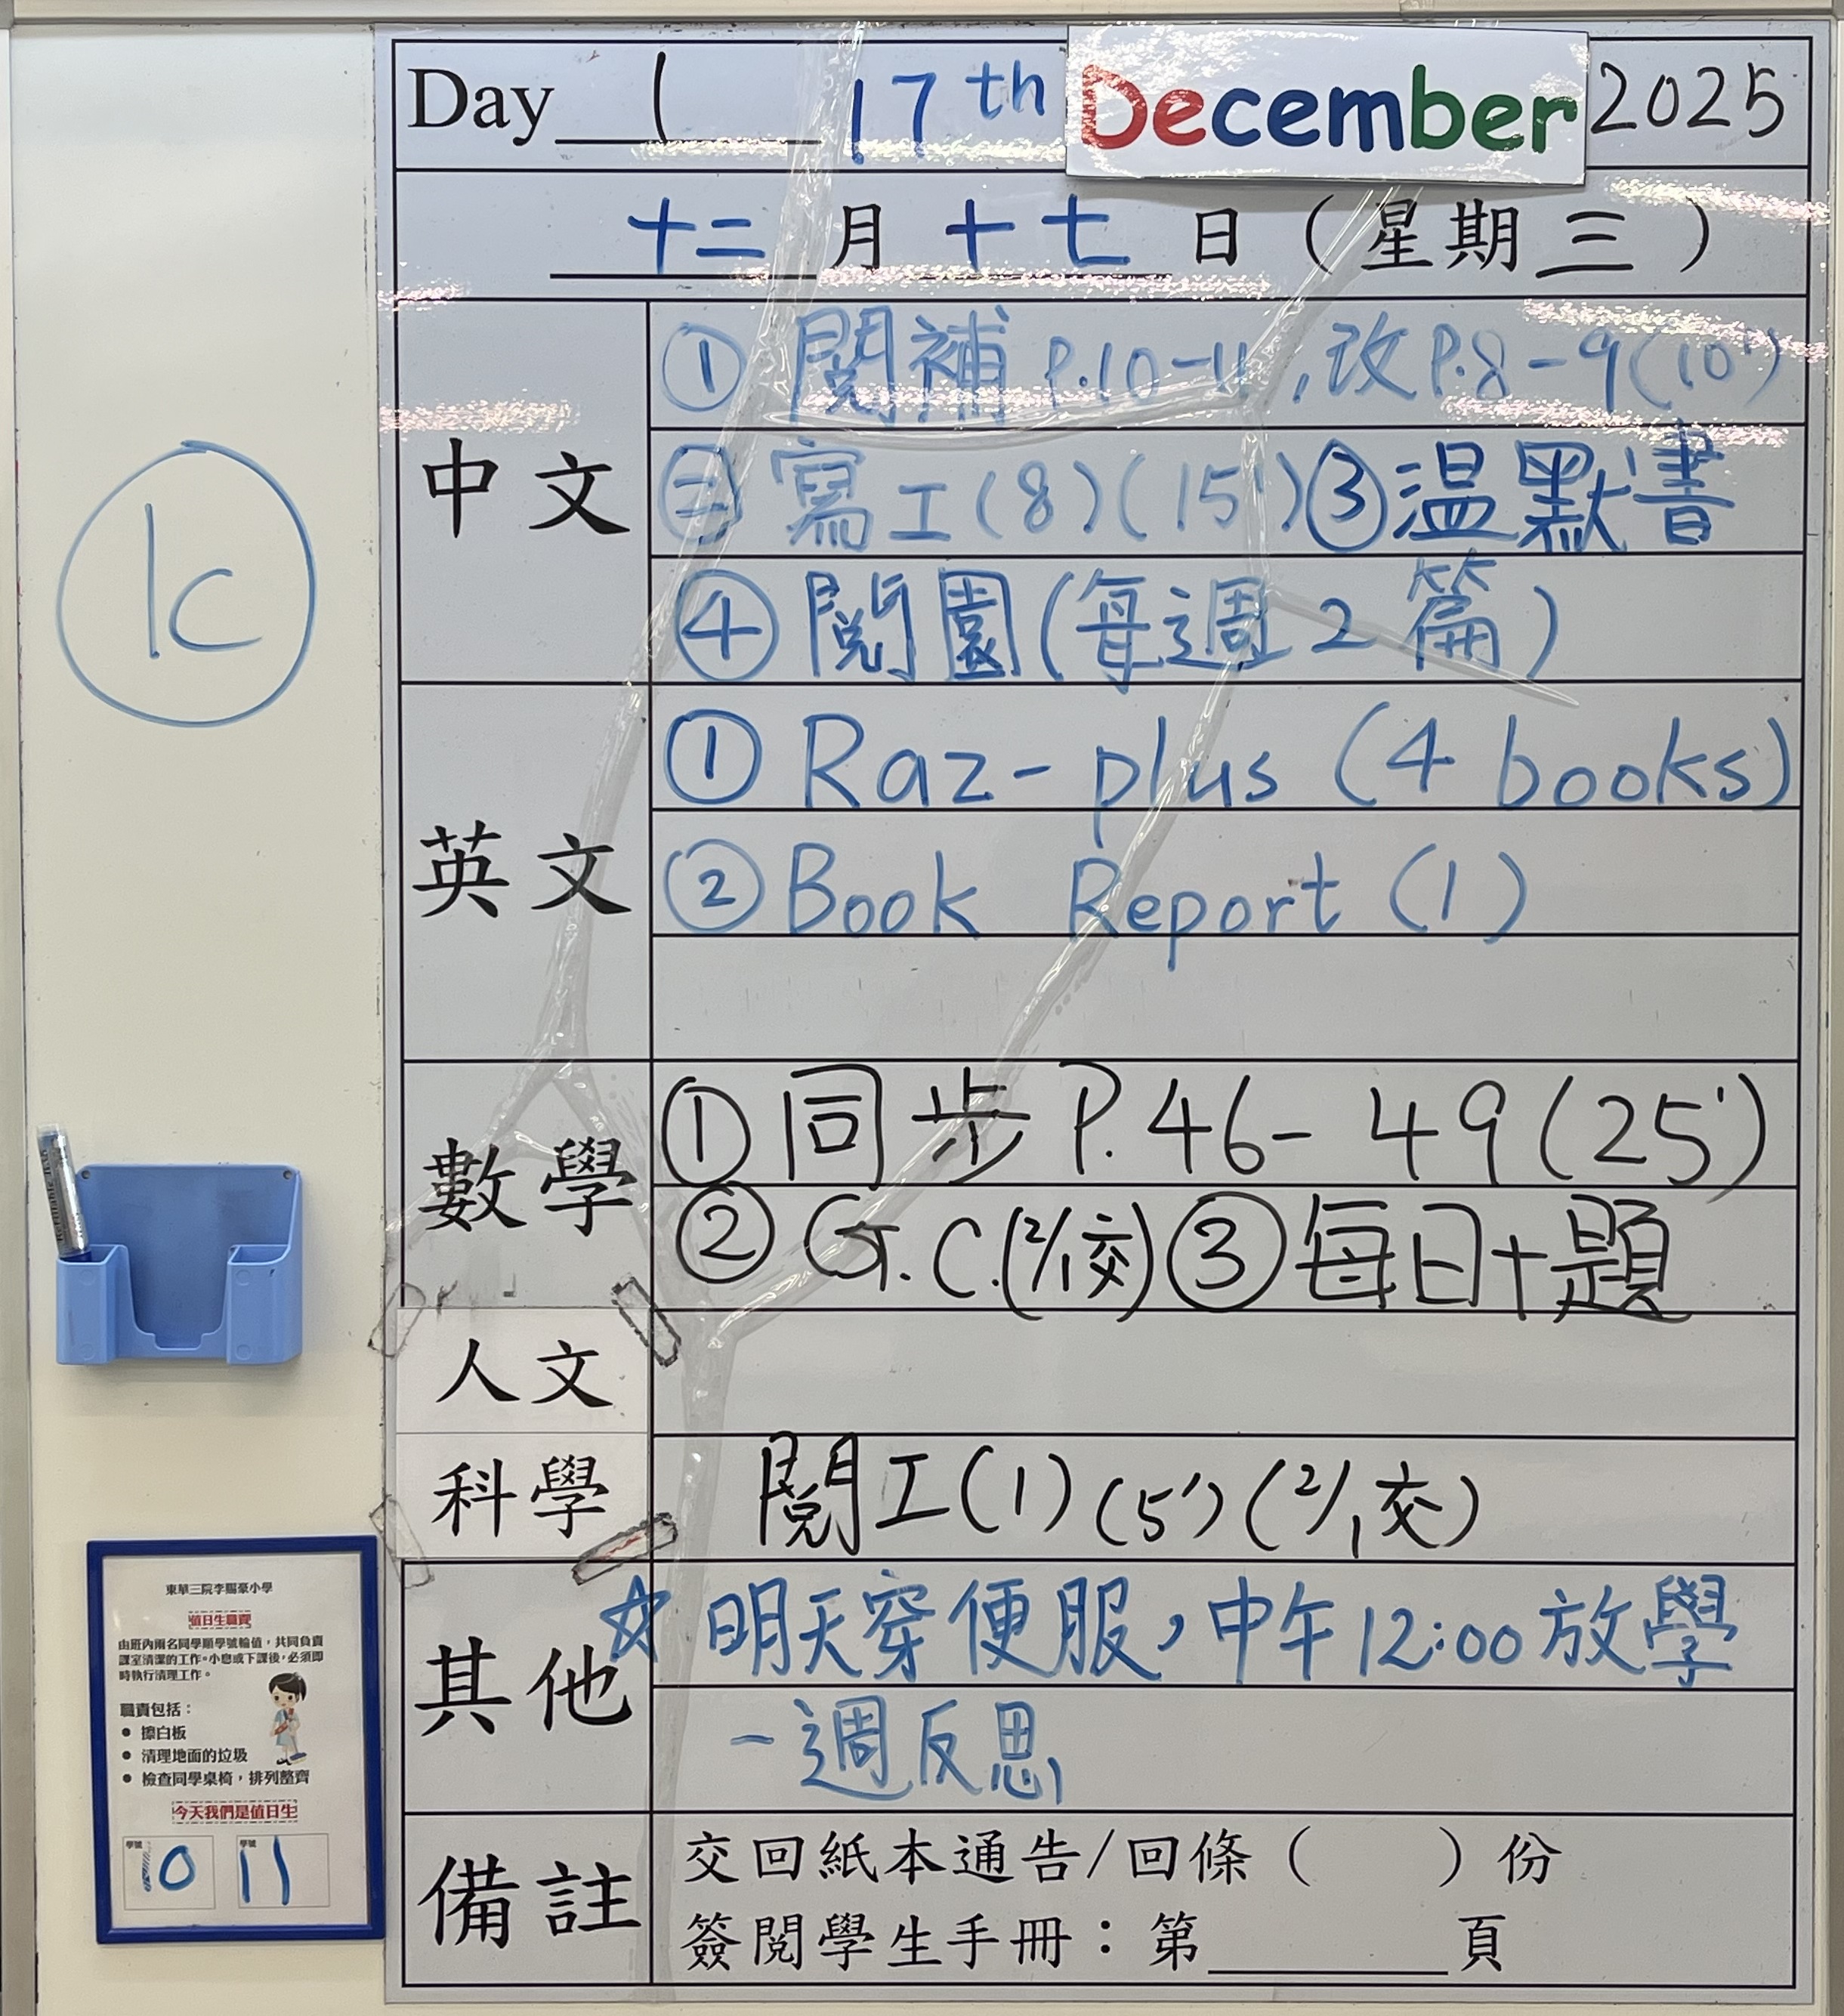 Day 1 17th December 2025
十二月十七日（星期三）
1C
中文
① 閱補 P.10-11,改P.8-9(10')
② 寫工(8)(15')③温默書
④ 閱園(每週2篇)
英文
① Raz-plus (4 books)
② Book Report (1)
數學
① 同步 P.46-49(25')
② G.C.(2/1交)③每日十題
人文
科學
閱工(1)(5')(2/1交)
其他
☆ 明天穿便服，中午12:00放學
一週反思
備註
交回紙本通告/回條（ ）份
簽閱學生手冊：第______頁
Refillable
東華三院李賜豪小學
值日生職責
由班內兩名同學順學號輪值，共同負責
課室清潔的工作。小息或下課後，必須即
時執行清理工作。
職責包括：
● 擦白板
● 清理地面的垃圾
● 檢查同學桌椅，排列整齊
今天我們是值日生
學號 10 學號 11